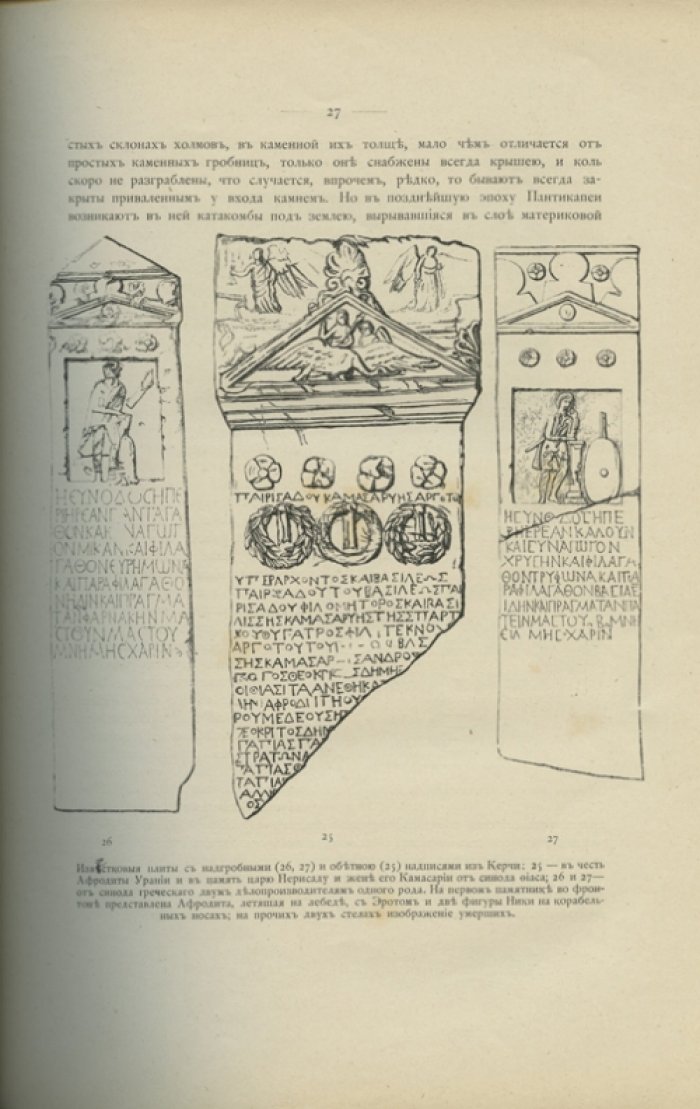 27
стыхъ склонахъ холмовъ, въ каменной ихъ толщѣ, мало чѣмъ отличается отъ
простыхъ каменныхъ гробницъ, только онѣ снабжены всегда крышею, и коль
скоро не разграблены, что случается, впрочемъ, рѣдко, то бываютъ всегда за-
крыты приваленнымъ у входа камнемъ. Но въ позднѣйшую эпоху Пантикапеи
возникаютъ въ ней катакомбы подъ землею, вырывавшіяся въ слоѣ материковой
ΗΣΥΝΟΔΟΣΗΠΕ
ΡΙΙΕΡΕΑΝ
ΓΑΘΟΝΕΥΡΗΜΩΝΑ
ΚΑΙΠΑΡΑΦΙΛΑΓΑΘΟ
ΤΑΝΦΑΡΝΑΚΗΝΜΑ
ΣΤΟΥΝΜΑΣΤΟΥ
ΜΝΗΜΗΣΧΑΡΙΝ
ΠΑΙΡΙΣΑΔΟΥΚΑΜΑΣΑΡΥΗΣΑΡΓΟΤΟ
ΥΠΕΡΑΡΧΟΝΤΟΣΚΑΙΒΑΣΙΛΕΩΣ
ΠΑΙΡΙΣΑΔΟΥΤΟΥΒΑΣΙΛΕΩΣΠΑΙ
ΡΙΣΑΔΟΥΦΙΛΟΜΗΤΟΡΟΣΚΑΙΒΑΣΙ
ΛΙΣΣΗΣΚΑΜΑΣΑΡΥΗΣΤΗΣΣΠΑΡΤΟ
ΚΟΥΘΥΓΑΤΡΟΣΦΙΛ ΤΕΚΝΟΥ
ΑΡΓΟΤΟΥΤΟΥ
ΣΗΣΚΑΜΑΣΑΡ ΣΑΝΔΡΟΣ
ΟΙΘΙΑΣΙΤΑΙΑΝΕΘΗΚΑ
ΡΟΥΜΕΔΕΟΥΣΗ
ΠΑΠΙΑΣΠΑ
ΣΤΡΑΤΩΝΑ
ΗΣΥΝΟΔΟΣΗΠΕ
ΡΙΙΕΡΕΑΝΚΑΛΟΥΝ
ΚΑΙΣΥΝΑΓΩΓΟΝ
ΧΡΥΣΗΝΚΑΙΦΙΛΑΓΑ
ΘΟΝΤΡΥΦΩΝΑΚΑΙΠΑ
ΡΑΦΙΛΑΓΑΘΟΝΒΑΣΙΛΕ
ΙΔΗΝΚΑΙΠΡΑΓΜΑΤΑΝΠΑ
26
25
27
Известковыя плиты съ надгробными (26, 27) и обѣтною (25) надписями изъ Керчи: 25 — въ честь
Афродиты Ураніи и въ память царю Перисаду и женѣ его Камасаріи отъ синода ѳіаса; 26 и 27—
отъ синода греческаго двумъ дѣлопроизводителямъ одного рода. На первомъ памятникѣ во фрон-
тонѣ представлена Афродита, летящая на лебедѣ, съ Эротомъ и двѣ фигуры Ники на корабель-
ныхъ носахъ; на прочихъ двухъ стелахъ изображеніе умершихъ.